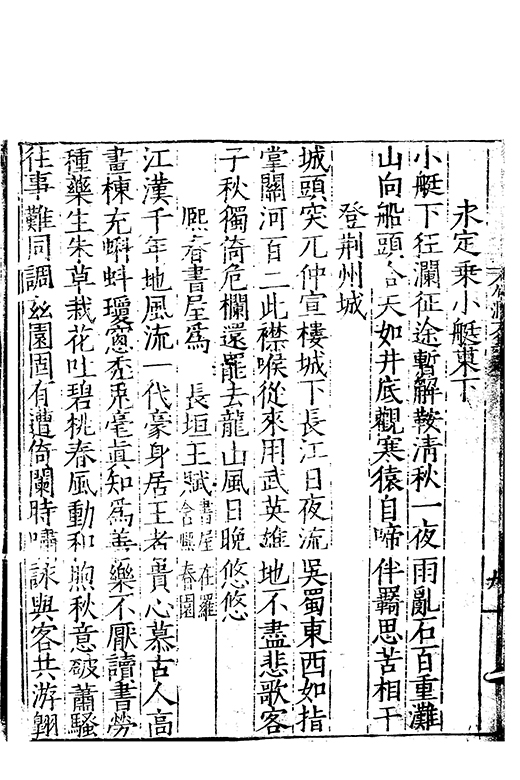 未定乘小艇東下
小艇下狂瀾征途暫解鞍清秋一夜雨亂石百重灘
山向船頭合天如井底觀寒猿自啼伴羇思苦相干
登荆州城
城頭突兀仲宣樓城下長江日夜流吳蜀東西如指
掌關河百二此襟喉從來用武英雄地不盡悲歌客
子秋獨倚危欄還罷去龍山風日晚悠悠
熈春書屋爲 長垣王賦書屋在羅
含熈春園
江漢千年地風流一代豪身居王者貴心慕古人高
畫棟充蝌蚪瓊窻禿兎毫眞知爲善樂不厭讀書勞
種藥生朱草栽花吐碧桃春風動和煦秋意破蕭騷
往事難同調兹園固有遭倚闌時嘯詠與客共游翺